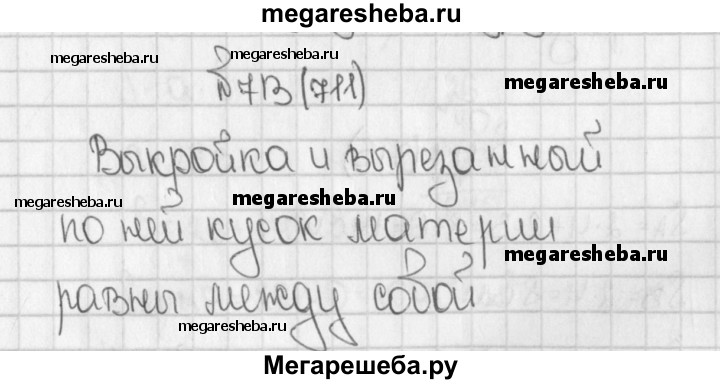 megaresheba.ru
megaresheba.ru
megaresheba.ru
№713 (711)
megaresheba.ru
Выкройка и вырезанный
megaresheba.ru
megaresheba.ru
по ней кусок материи
megaresheba.ru
равны между собой
megaresheba.ru
Мегарешеба.ру